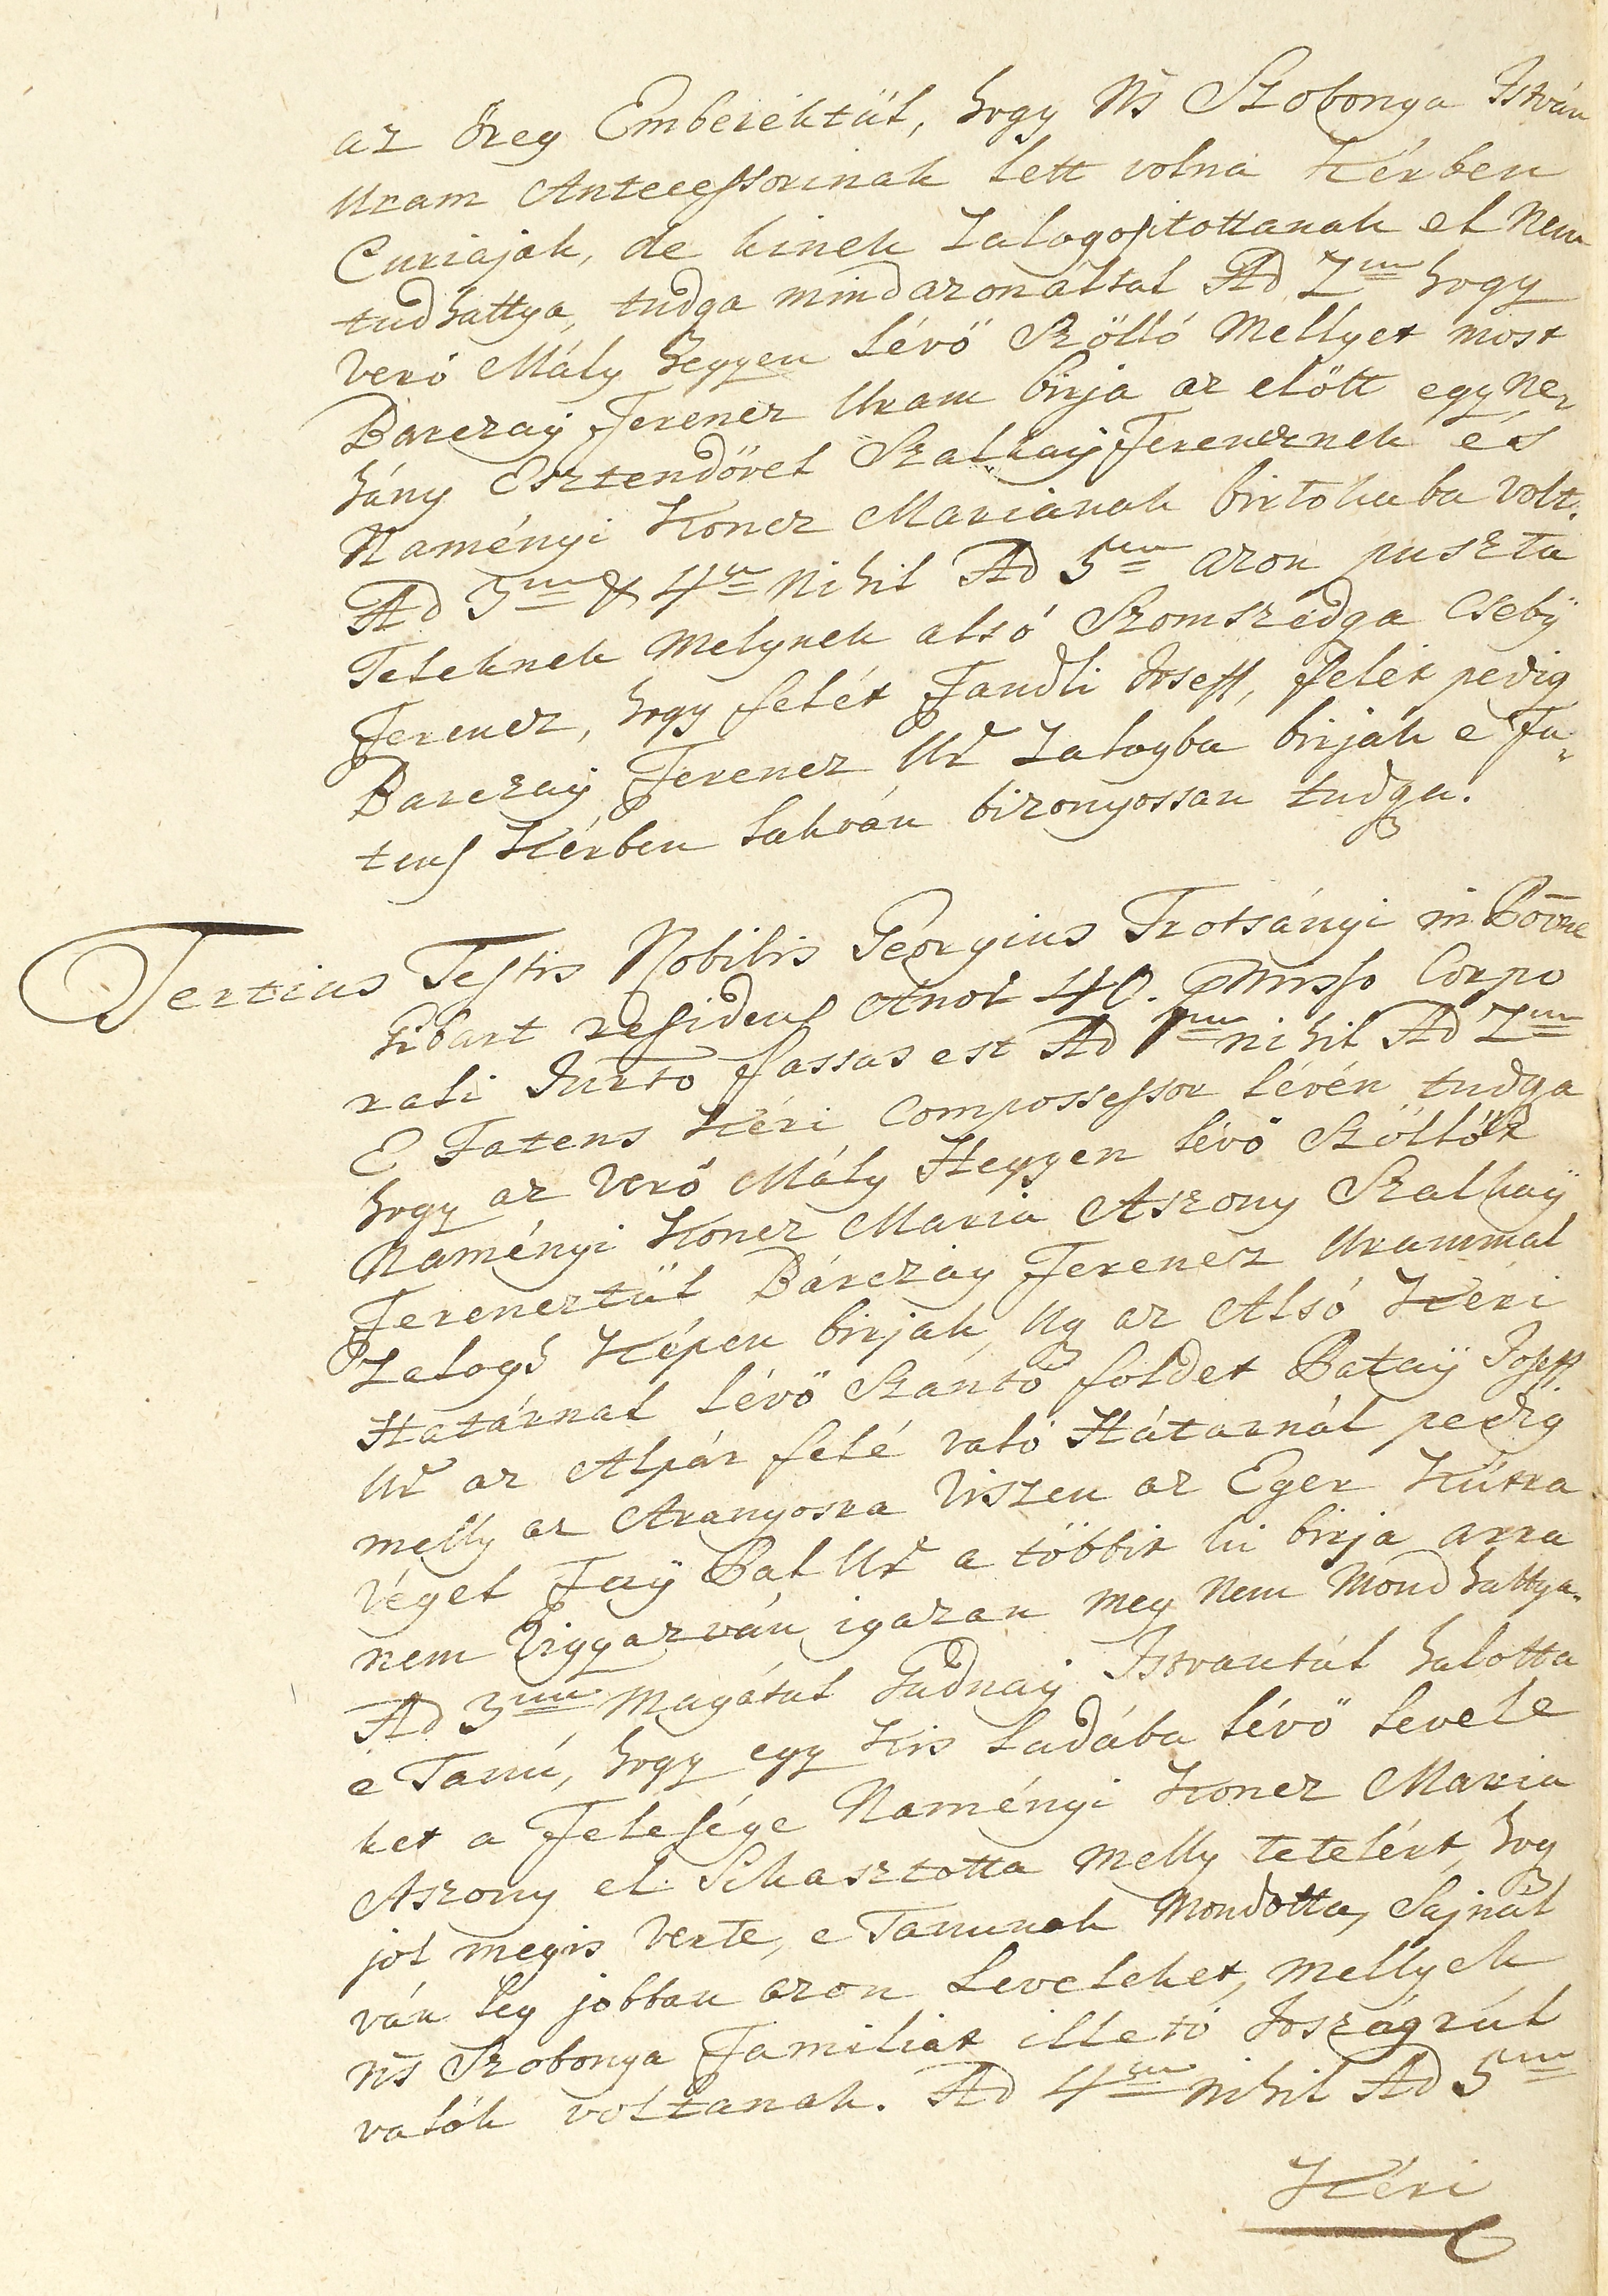 az öreg Emberéktül, hogy Ns Szobonya István
Uram Antecessorinak lett volna Kérben
Curiajok, de kinek Zalogositottanak el nem
tudhattya, tudga mindazonáltal Ad 2um hogy
Verö Mály hegyen lévö Szölló mellyet most
Barczaÿ Ferencz Uram birja az elött egy ne„
hány Esztendövel Szalkaÿ Ferencznek és
Naményi Koncz Mariának birtokaba volt.
Ad 3um & 4um Nihil Ad 5um azon puszta
Teleknek melynek alsó Szomszédga Csebÿ
Ferencz, hogy felét Fandli Joseff, felét pedig
Barczaÿ Ferencz Ur Zalogba birják e Fa„
tens Kérben lakván bizonyossan tudga.
Tertius Testis Nobilis Georgius Trotsányi in Possne
Gibart residens Annor 40. pmisso Corpo
rali Jurto fassus est Ad 1um nihil Ad 2um
E Fatens Kéri Compossessor lévén tudga
hogy az Verö Mály Hegyen lévö Szöllöt
Naményi Koncz Maria Aszony Szalkaÿ
Ferencztül Bárczay Ferencz Urammal
Zalogh Képen birják, Ug az Alsó Kéri
Határnal lévö Szantó foldet Pataÿ Joseff
Ur az Alpár felé való Hátarnál pedig
melly az Aranyosra Viszen az Eger Kútra
véget Faÿ Pal Ur a többit ki birja arra
nem Vigyazván igazan meg nem mondhattya.
Ad 3um Magátul Gudnaÿ Istvantúl halotta
e Tanú, hogy egy Kis Ladába lévö levele
ket a Felesége Naményi Koncz Maria
Aszony el Sikasztotta melly tetelért, hog
jol megis Verte, e Tanunak mondotta, Sajnál
ván leg jobban azon Leveleket, mellyek
Ns Szobonya Familiat illetö Joszágrúl
valók voltanak. Ad 4um nihil Ad 5um
Kéri